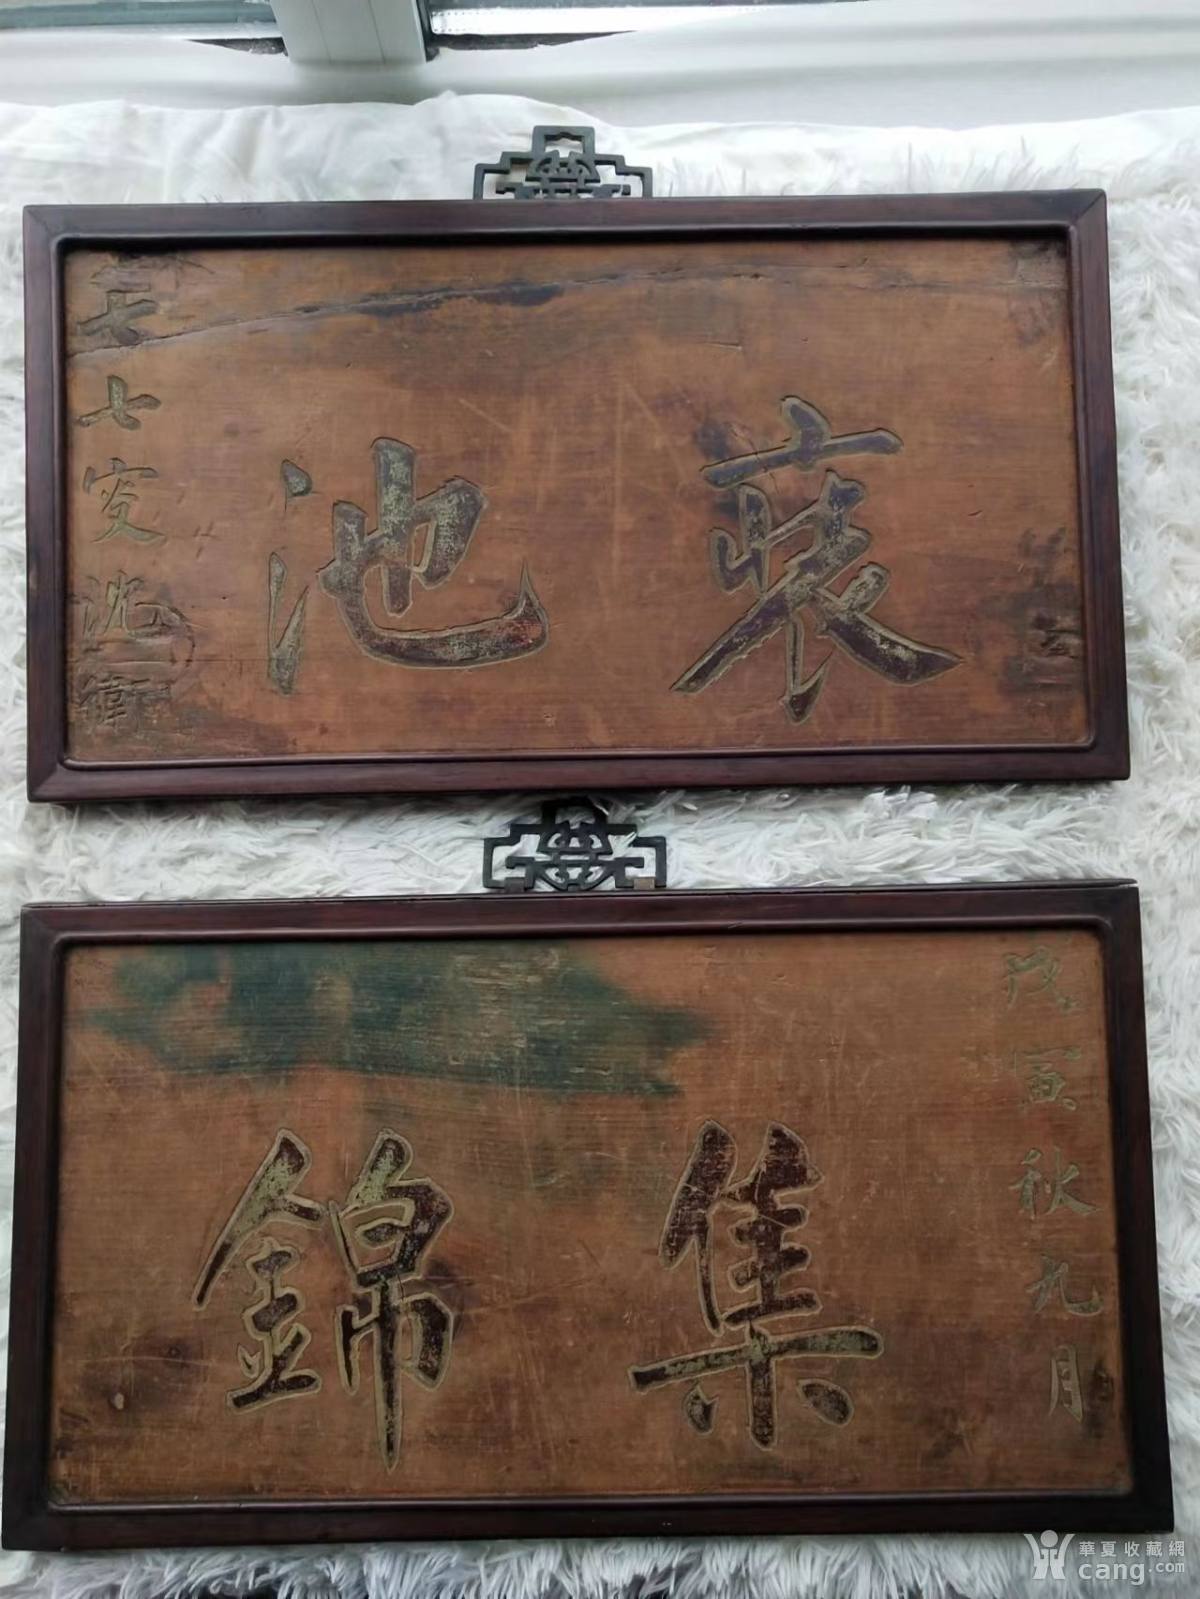 池
七七叟沈衛
戊寅秋九月
集錦
華夏收藏網
cang.com